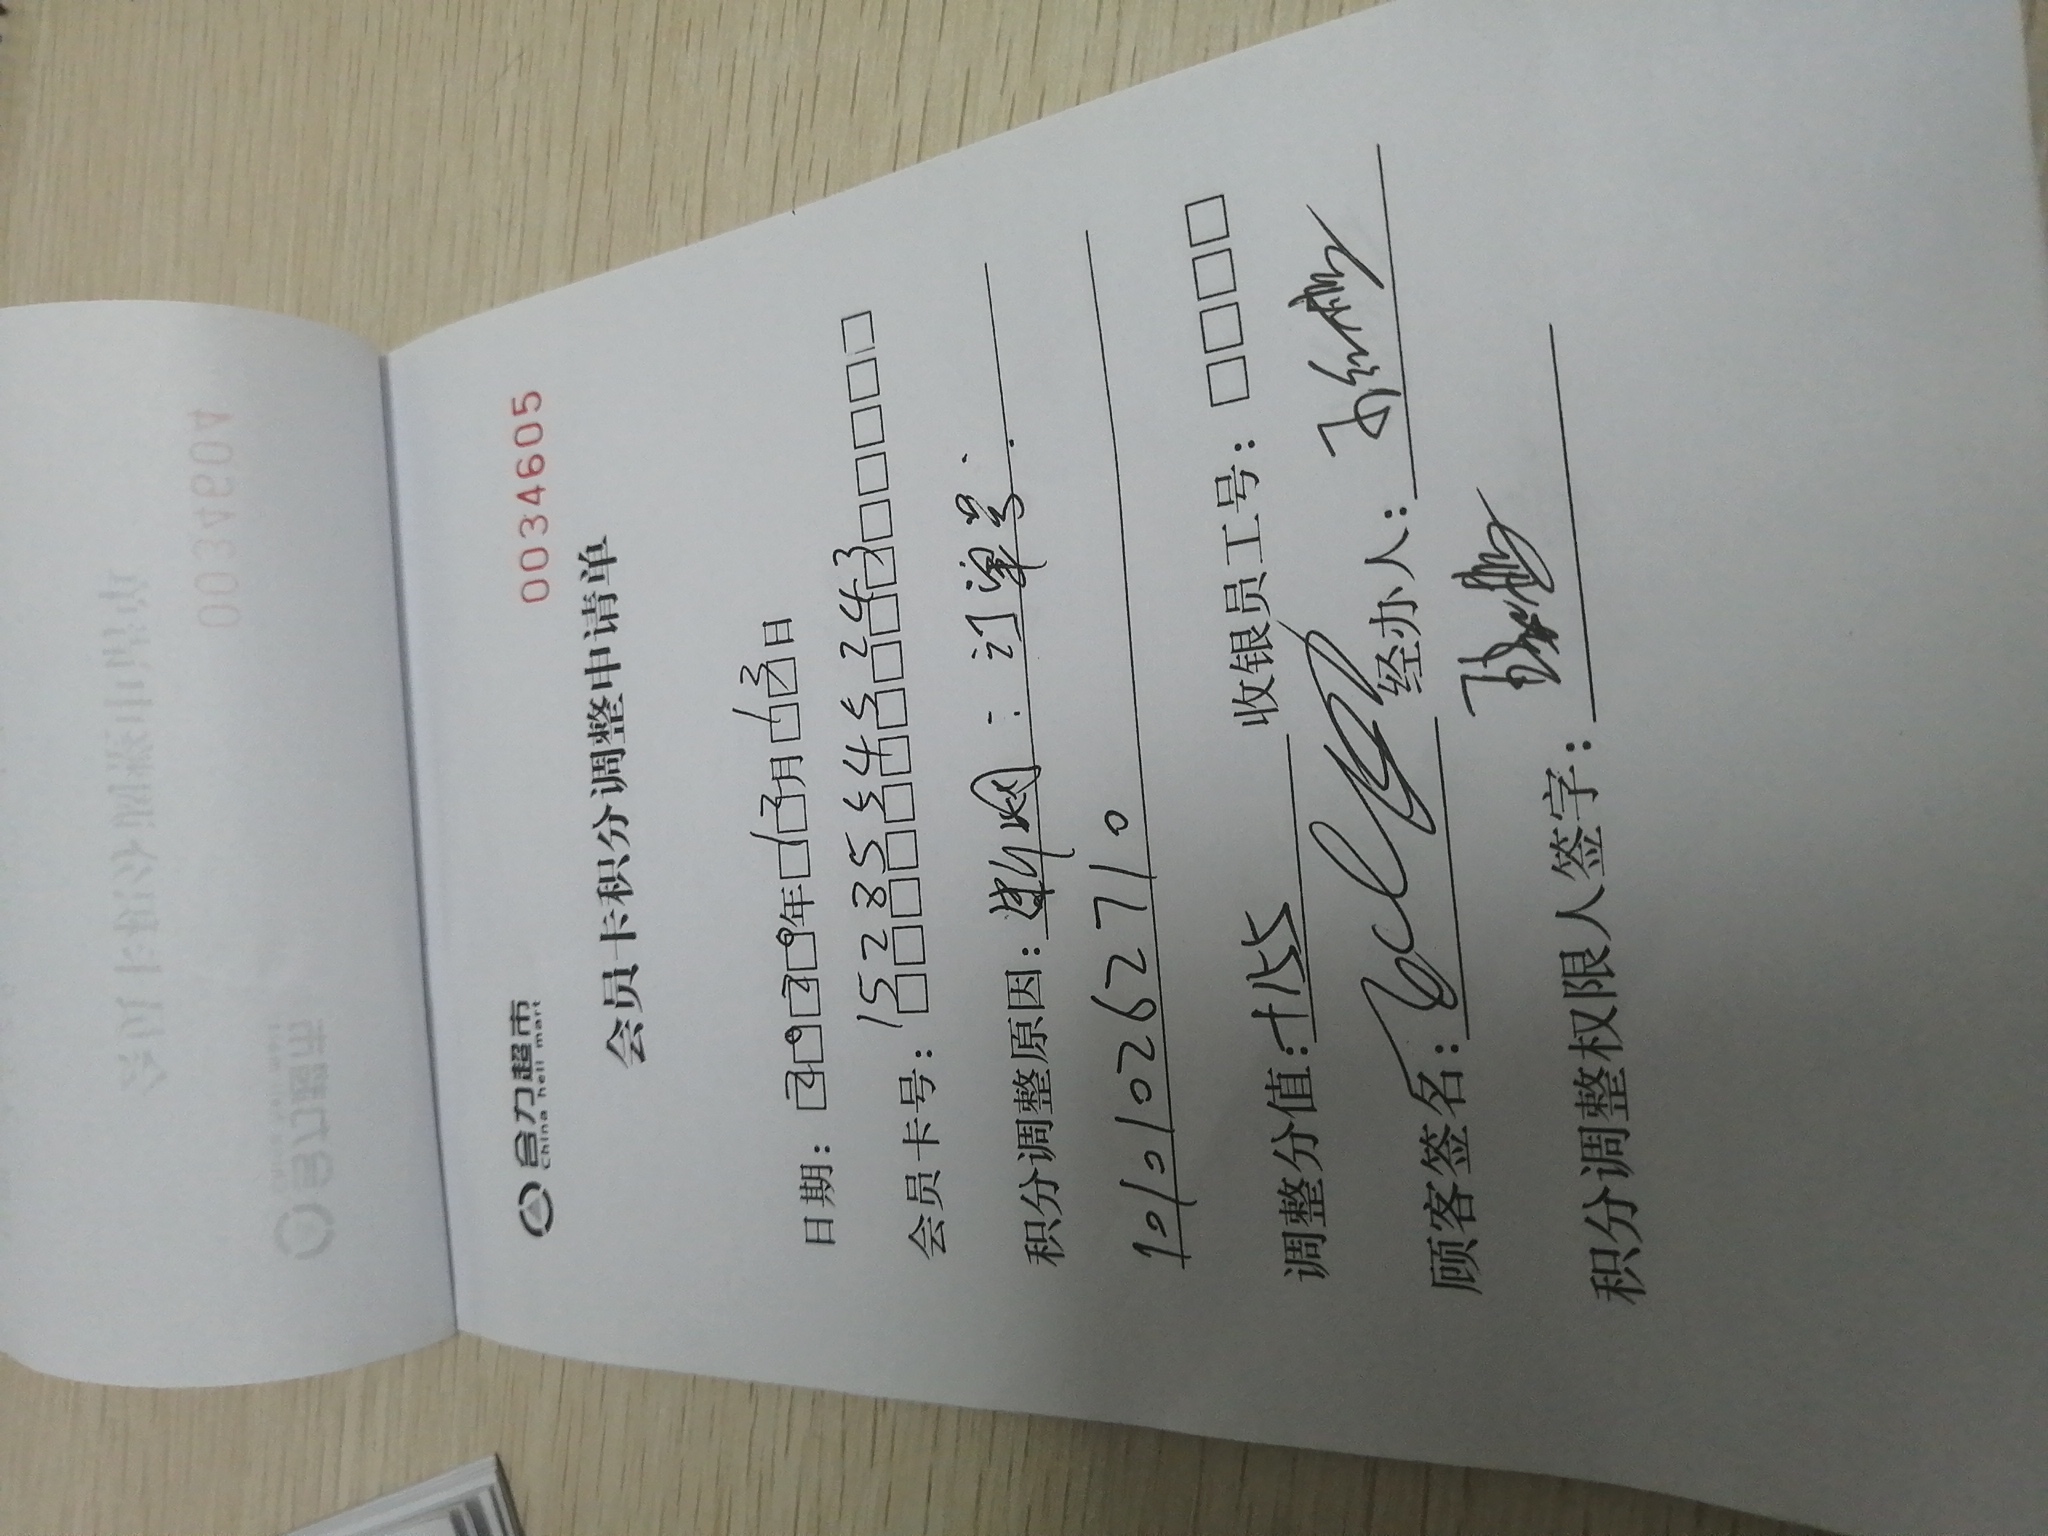 合力超市
China heli mart
0034605
会员卡积分调整申请单
日期：2020年12月13日
会员卡号：15285545243
积分调整原因：断网：订单号：
101010262710
调整分值：+155 收银员工号：□□□□
顾客签名： 经办人：
积分调整权限人签字：
0034604
会员卡积分调整申请单
合力超市